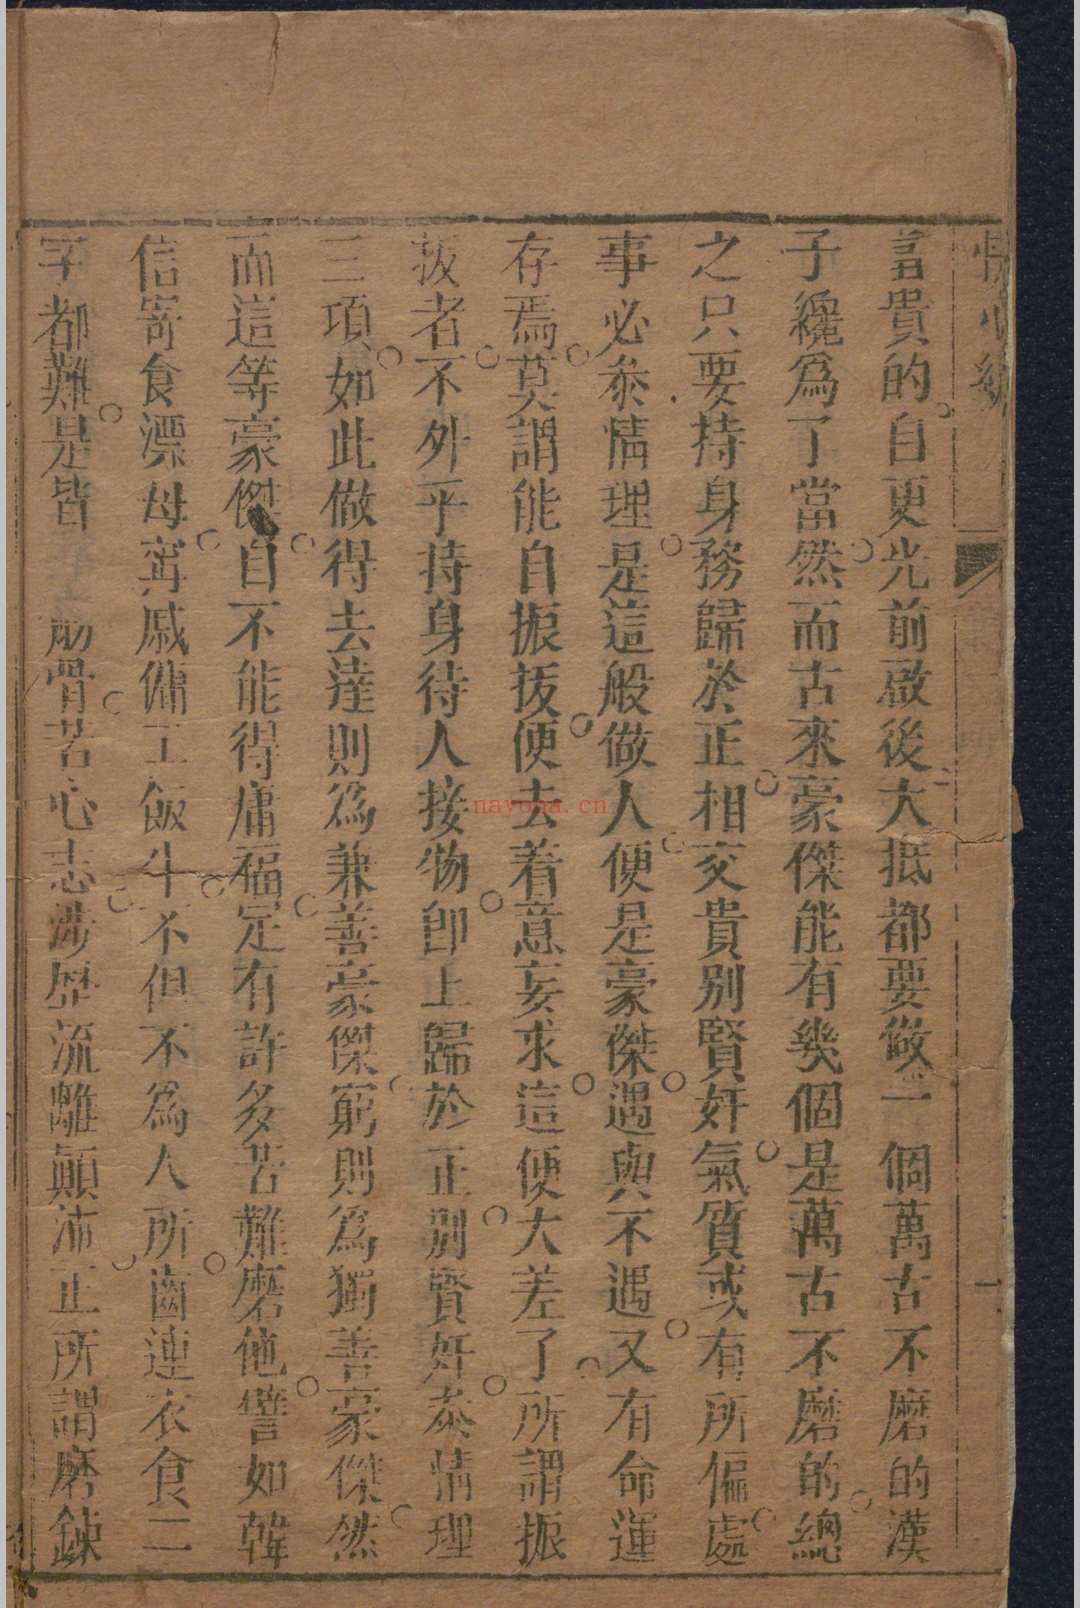 快心編
一
富貴的自更光前啟後大抵都要做一個萬古不磨的漢
子纔爲了當然而古來豪傑能有幾個是萬古不磨的總
之只要持身務歸於正相交貴别賢奸氣質或有所偏處
事必叅情理是這般做人便是豪傑遇與不遇又有命運
存焉莫謂能自振拔便去着意妄求這便大差了所謂振
拔者不外乎持身待人接物卽上歸於正别賢奸叅情理
三項如此做得去達則爲兼善豪傑窮則爲獨善豪傑然
而這等豪傑自不能得庸福定有許多苦難磨他譬如韓
信寄食漂母寗戚傭工飯牛不但不爲人所齒連衣食二
字都難是皆筋骨苦心志涉歷流離顛沛正所謂磨鍊
nayona.cn